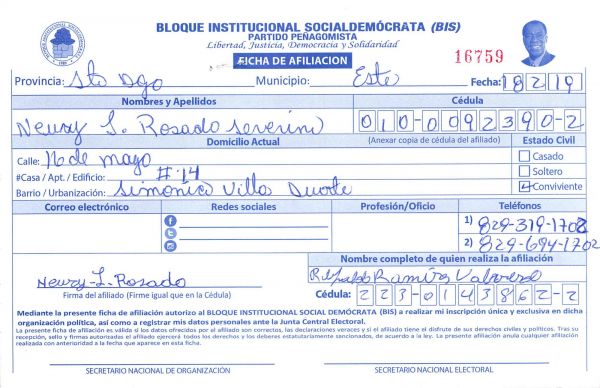 BLOQUE INSTITUCIONAL SOCIALDEMÓCRATA (BIS)
PARTIDO PEÑAGOMISTA
Libertad, Justicia, Democracia y Solidaridad
FICHA DE AFILIACION
16759
Provincia: Sto Dgo Municipio: Este Fecha: 18 2 19
Nombres y Apellidos Cédula
Neury L. Rosado Severino 010-0092390-2
Domicilio Actual (Anexar copia de cédula del afiliado) Estado Civil
Calle: 16 de mayo Casado
#Casa / Apt. / Edificio: #14 Soltero
Barrio / Urbanización: Simonica Villa Duarte Conviviente
Correo electrónico Redes sociales Profesión/Oficio Teléfonos
1) 829-319-1702
2) 829-694-1702
Nombre completo de quien realiza la afiliación
Neury-L-Rosado Ramírez
Firma del afiliado (Firme igual que en la Cédula) Cédula: 223-0143862-2
Mediante la presente ficha de afiliación autorizo al BLOQUE INSTITUCIONAL SOCIAL DEMÓCRATA (BIS) a realizar mi inscripción única y exclusiva en dicha
organización política, así como a registrar mis datos personales ante la Junta Central Electoral.
La presente ficha de afiliación es válida si los datos ofrecidos por el afiliado son correctos, las declaraciones veraces y si el afiliado tiene el disfrute de sus derechos civiles y políticos. Tras su
recepción, sello y firmas autorizadas el afiliado ejercerá todos los derechos y los deberes estatutariamente sancionados, de acuerdo a la ley. La presente afiliación anula cualquier afiliación
realizada con anterioridad a la fecha que aparece en esta ficha.
SECRETARIO NACIONAL DE ORGANIZACIÓN SECRETARIO NACIONAL ELECTORAL